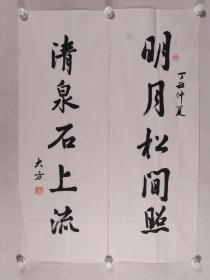 丁丑仲夏
明月松间照
清泉石上流
大方